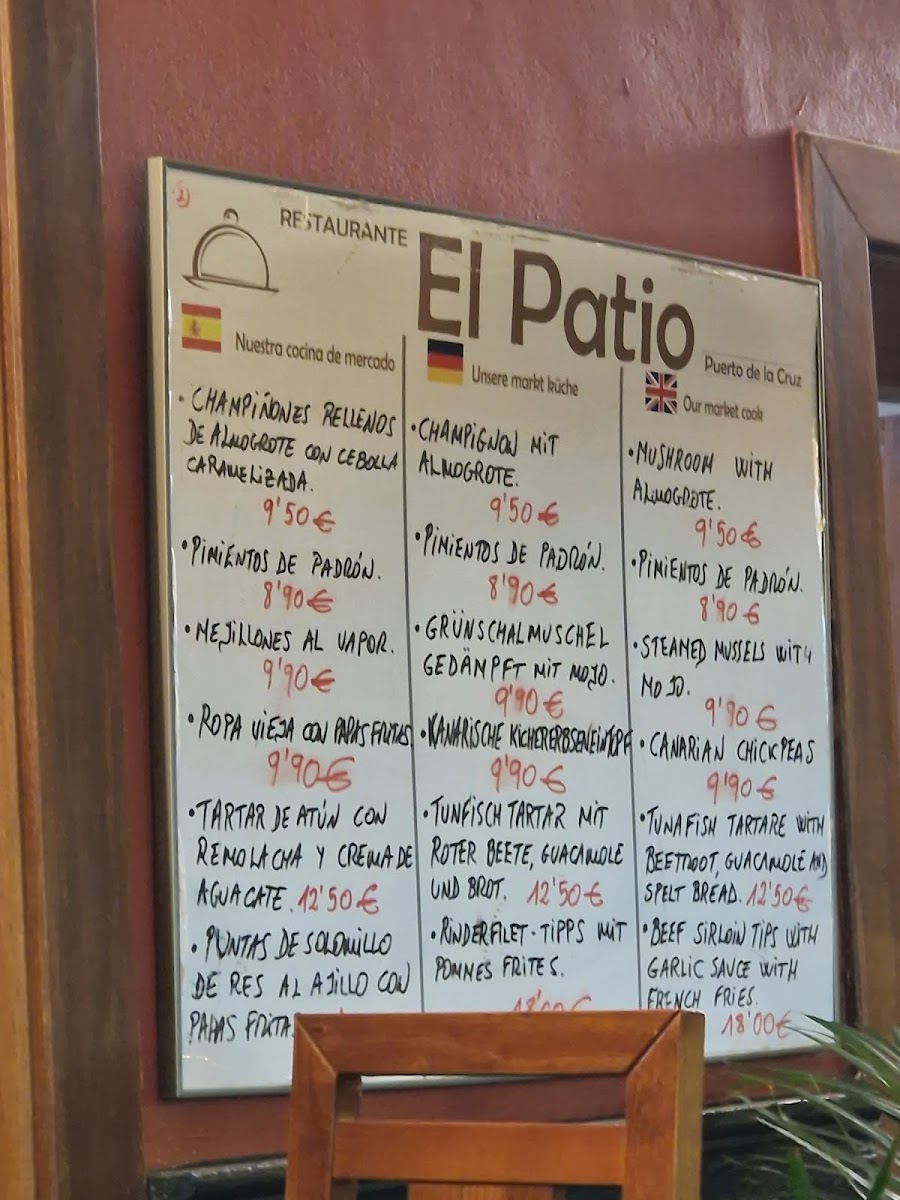 2)
RESTAURANTE
El Patio
Puerto de la Cruz
Nuestra cocina de mercado
• CHAMPIÑONES RELLENOS
DE ALMOGROTE CON CEBOLLA
CARAMELIZADA.
9'50€
• PIMIENTOS DE PADRÓN.
8'90€
• MEJILLONES AL VAPOR.
9'90€
• ROPA VIEJA CON PAPAS FRITAS
9'90€
• TARTAR DE ATÚN CON
REMOLACHA Y CREMA DE
AGUACATE. 12'50€
• PUNTAS DE SOLOMILLO
DE RES AL AJILLO CON
PAPAS FRITA
Unsere markt küche
• CHAMPIGNON MIT
ALMOGROTE.
9'50€
• PIMIENTOS DE PADRÓN.
8'90€
• GRÜNSCHALMUSCHEL
GEDÄMPFT MIT MOJO.
9'90€
• KANARISCHE KICHERERBSENEINTOPF
9'90€
• TUNFISCH TARTAR MIT
ROTER BEETE, GUACAMOLE
UND BROT. 12'50€
• RINDERFILET-TIPPS MIT
POMMES FRITES.
18'00€
Our market cook
• MUSHROOM WITH
ALMOGROTE.
9'50€
• PIMIENTOS DE PADRÓN.
8'90€
• STEAMED MUSSELS WITH
MOJO.
9'90€
• CANARIAN CHICKPEAS
9'90€
• TUNAFISH TARTARE WITH
BEETROOT, GUACAMOLE AND
SPELT BREAD. 12'50€
• BEEF SIRLOIN TIPS WITH
GARLIC SAUCE WITH
FRENCH FRIES.
18'00€